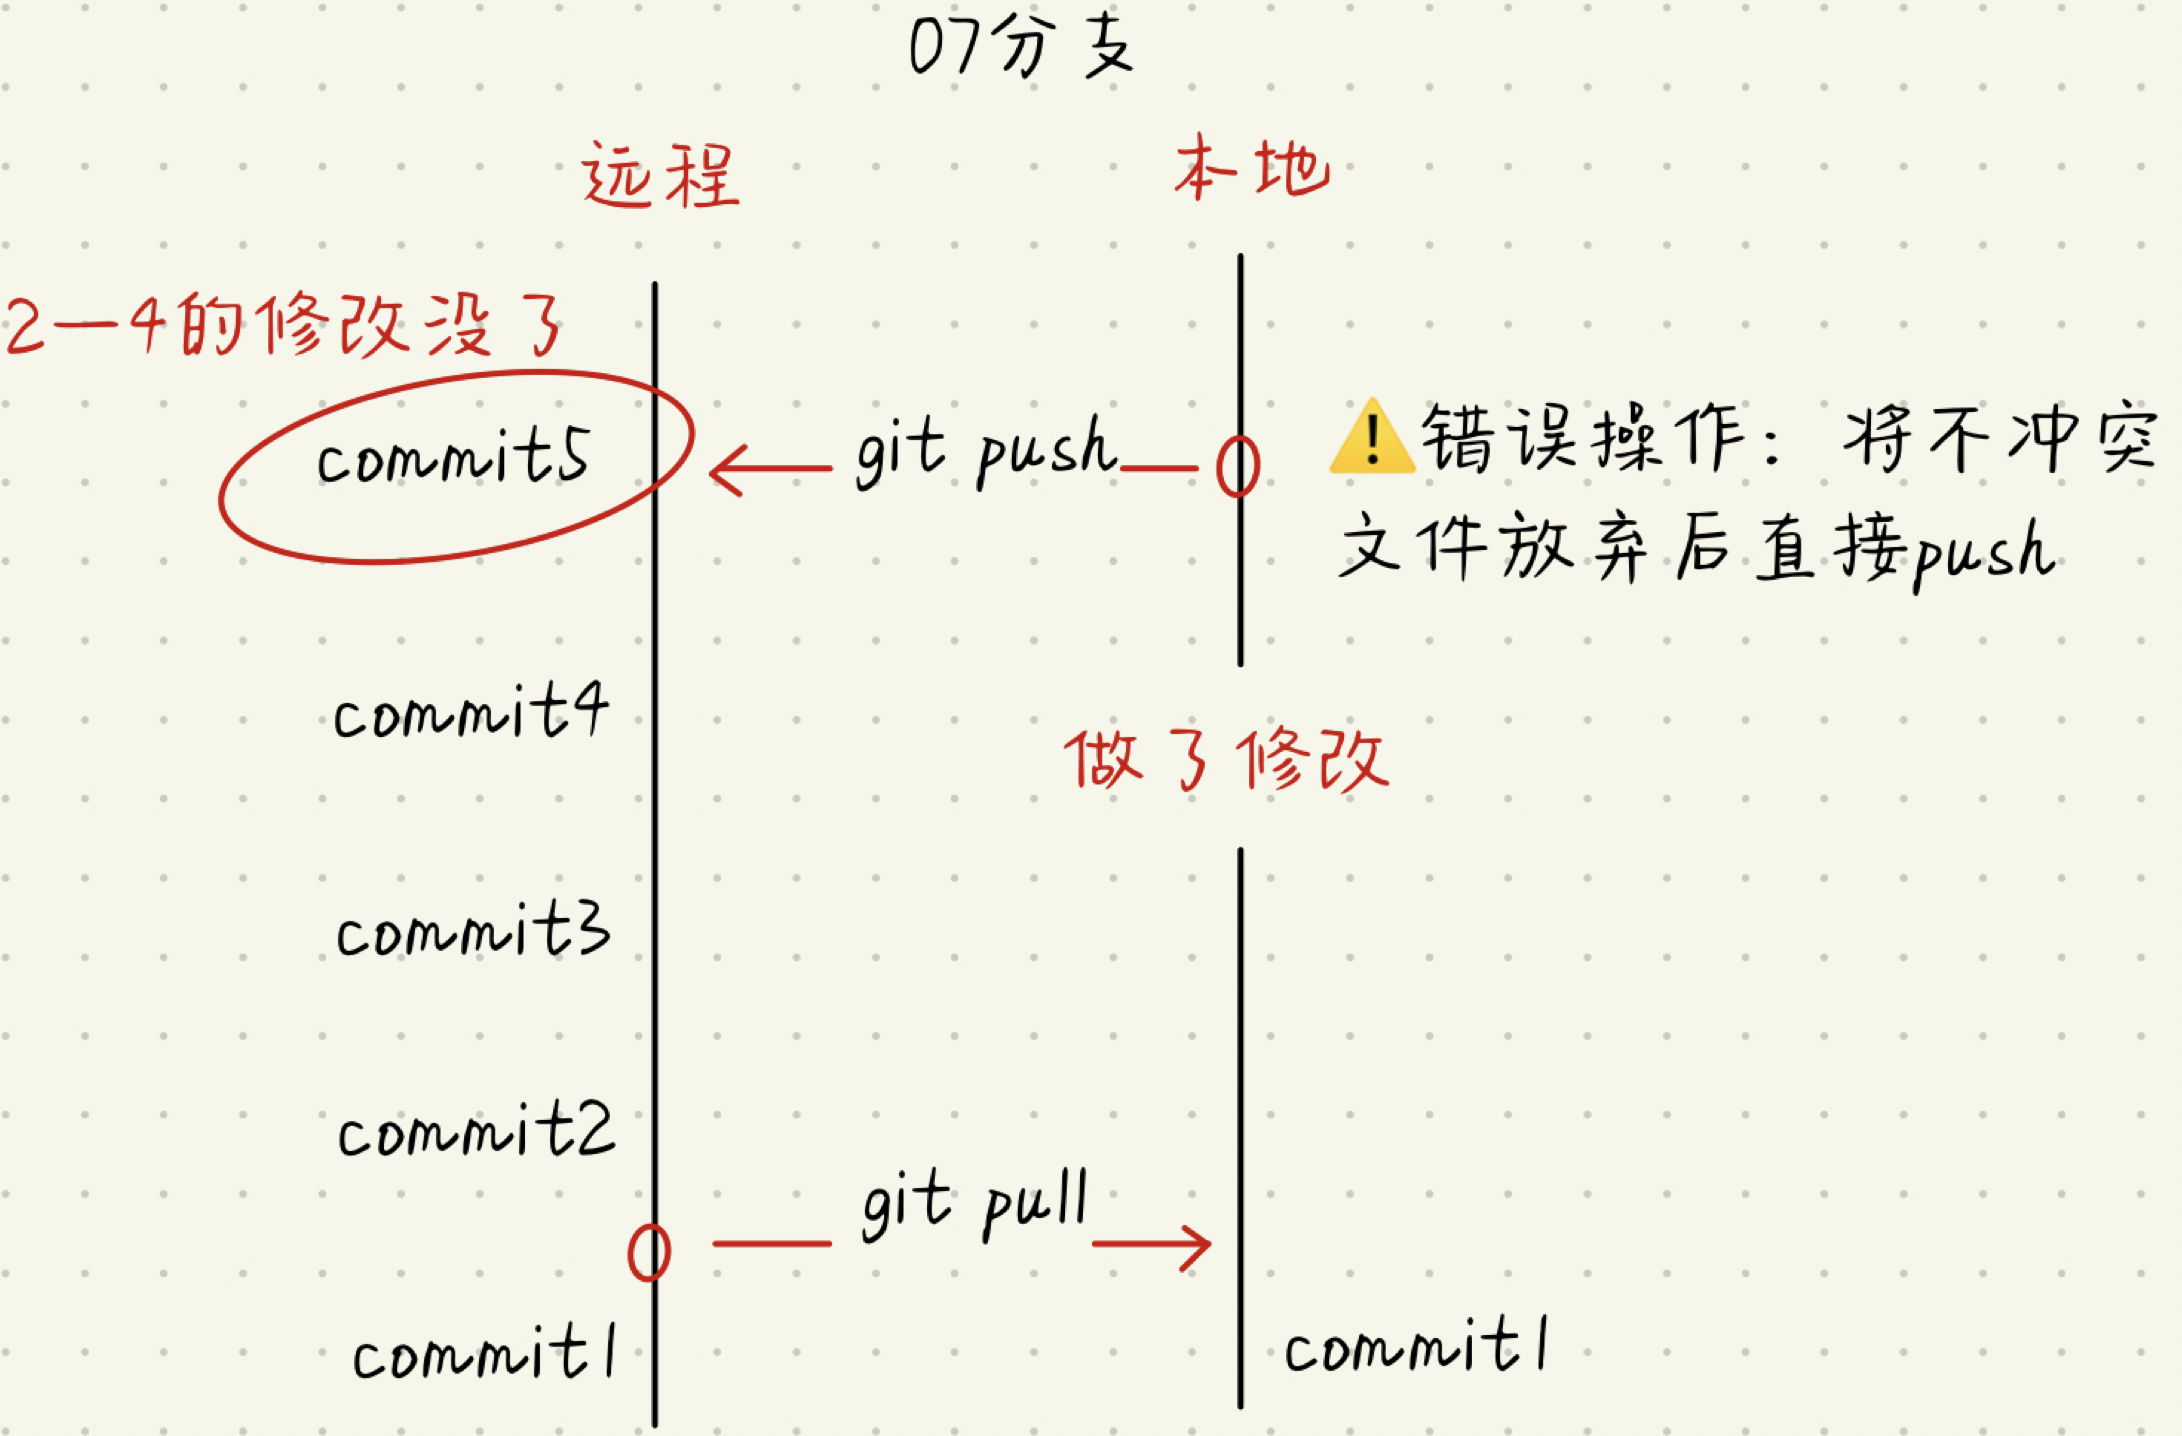 07分支
远程
本地
2—4的修改没了
commit5
git push
⚠️错误操作：将不冲突
文件放弃后直接push
commit4
做了修改
commit3
commit2
git pull
commit1
commit1